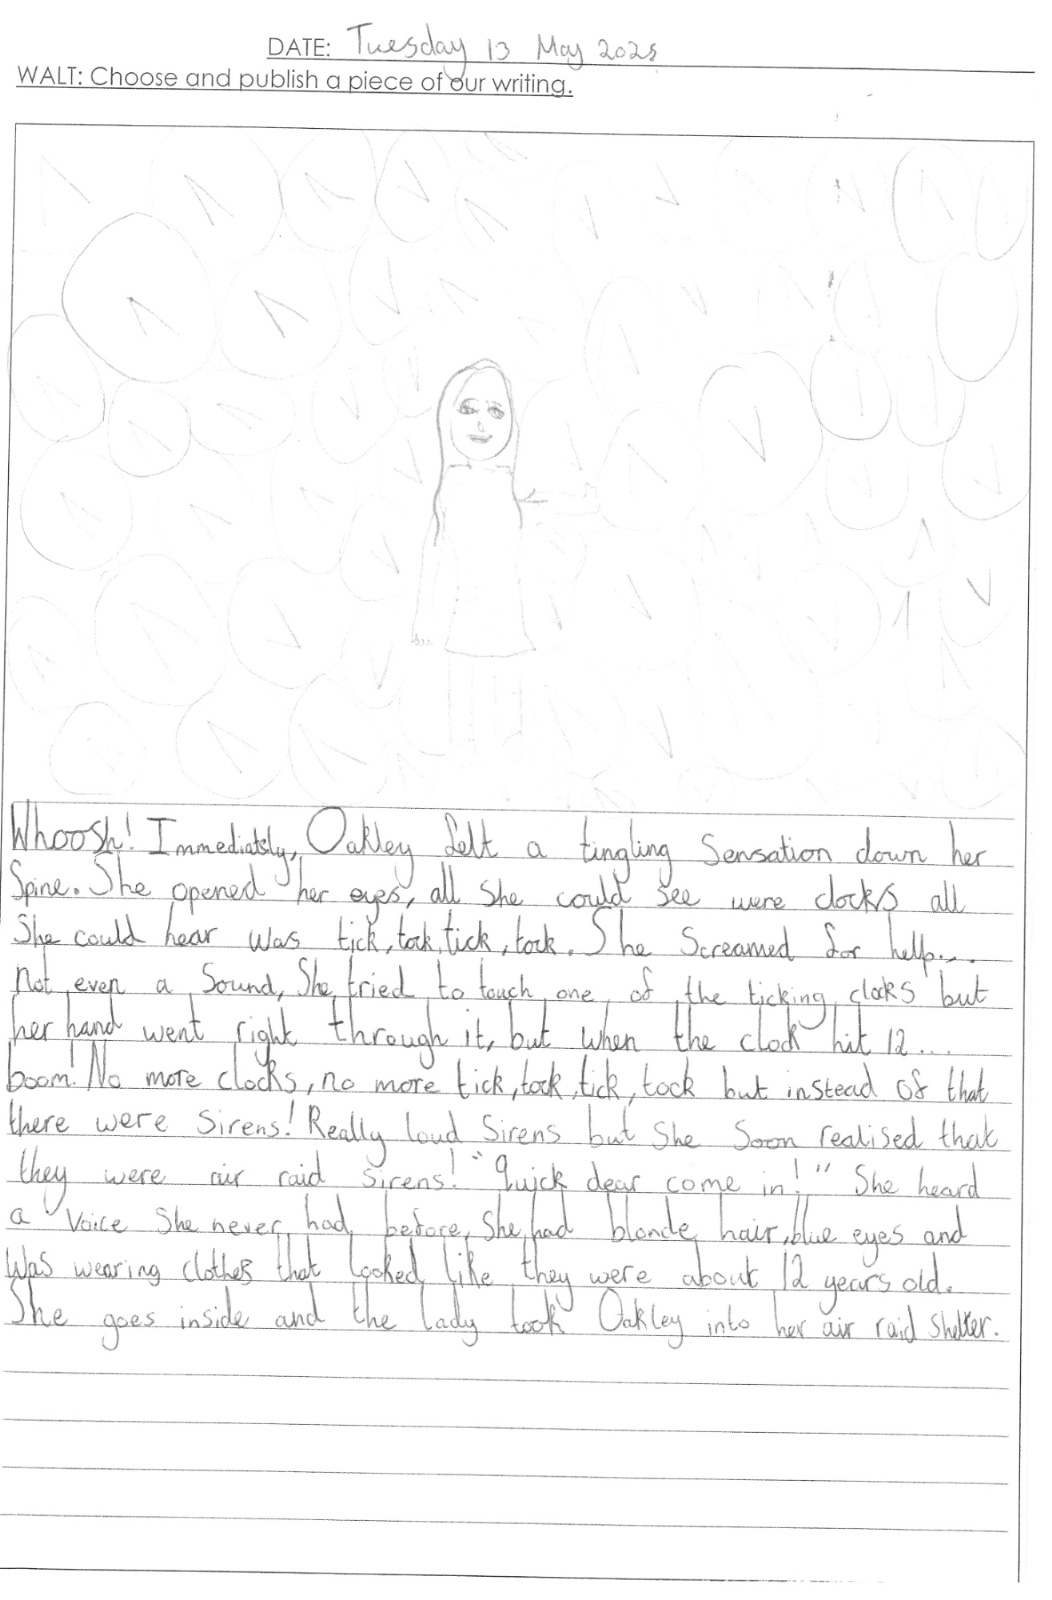 DATE: Tuesday 13 May 2025
WALT: Choose and publish a piece of our writing.
Whoosh! Immediately, Oakley felt a tingling Sensation down her
Spine. She opened her eyes, all she could see were clocks all
She could hear was tick, tock, tick, tock. She screamed for help...
Not even a Sound, She tried to touch one of the ticking clocks but
her hand went right through it, but when the clock hit 12...
boom! No more clocks, no more tick, tock, tick, tock but instead of that
there were sirens! Really loud sirens but she soon realised that
they were air raid sirens! "Quick dear come in!" She heard
a voice she never had before, She had blonde hair, blue eyes and
Was wearing clothes that looked like they were about 12 years old.
She goes inside and the lady took Oakley into her air raid shelter.